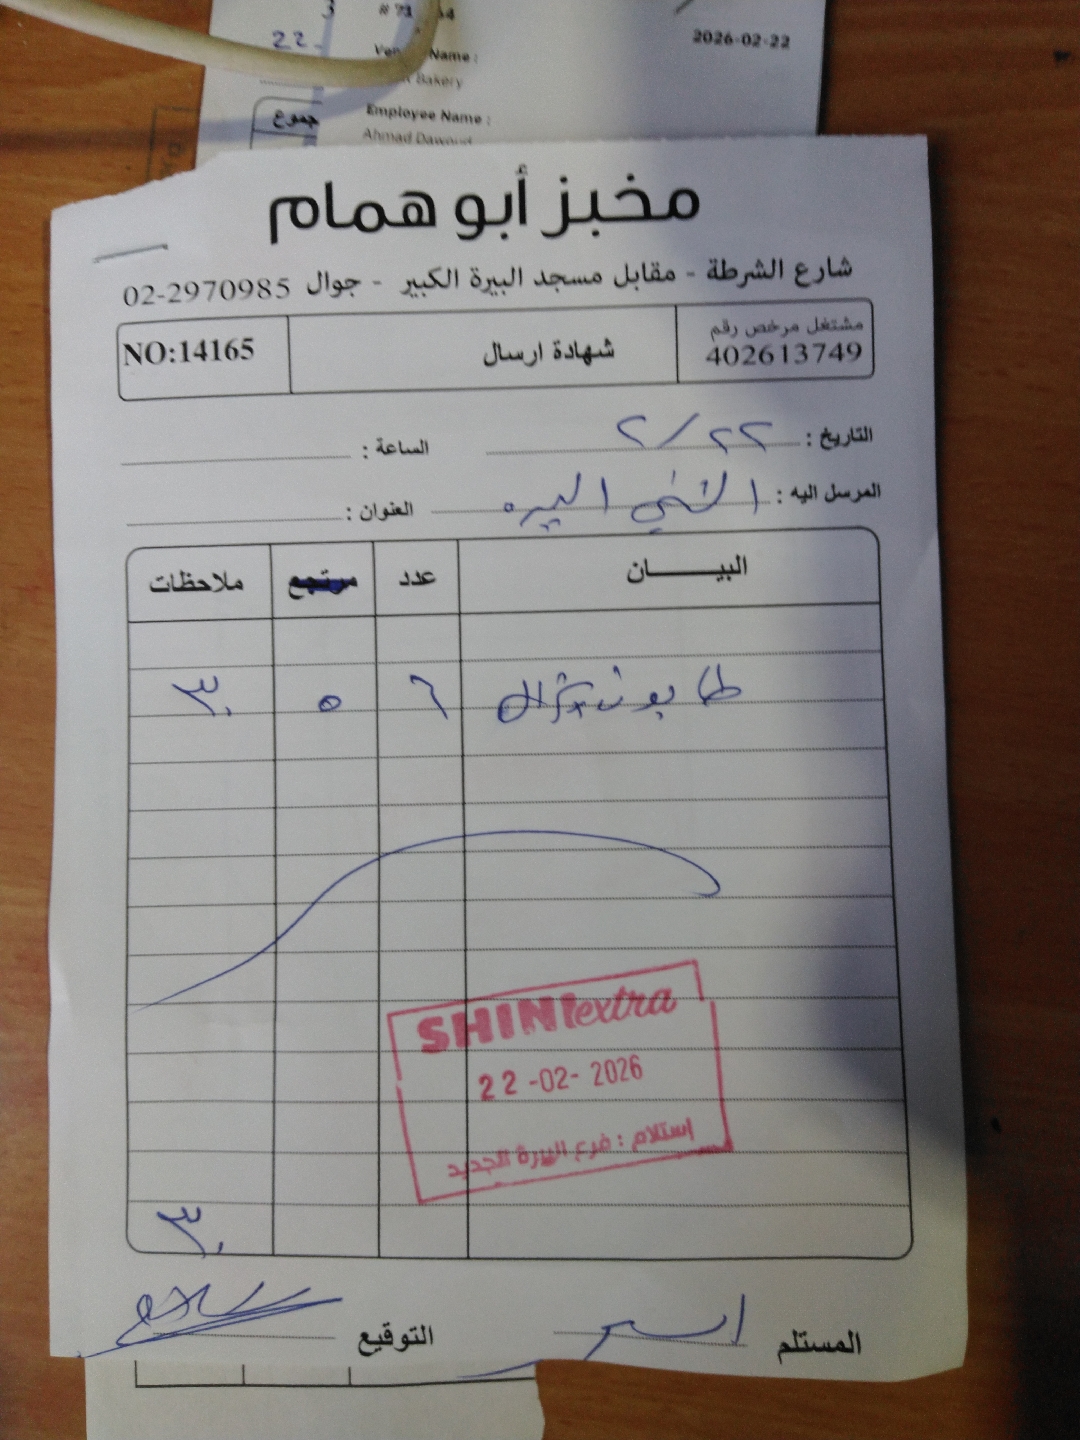 3
22
# 71
2026-02-22
Name :
Bakery
Employee Name :
Ahmad Dawoud
مخبز أبو همام
شارع الشرطة - مقابل مسجد البيرة الكبير - جوال 02-2970985
مشتغل مرخص رقم
402613749
شهادة ارسال
NO:14165
التاريخ : ٢٢/٢ الساعة :
المرسل اليه : الشني البيره العنوان :
البيـــــان عدد مرتجع ملاحظات
طابون ٦ ٥ ٣٠
SHINIextra
22-02-2026
استلام : فرع البيرة الجديد
٣٠
المستلم التوقيع